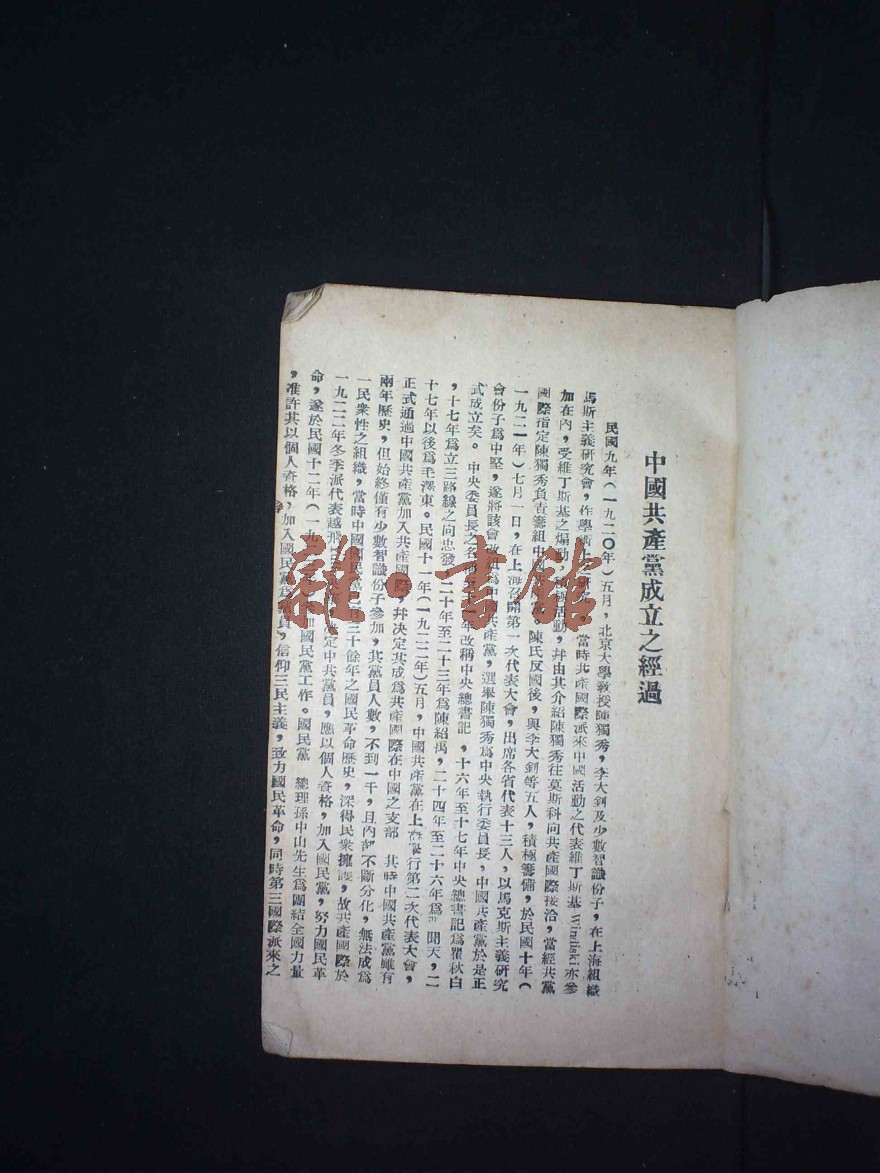 中國共產黨成立之經過
民國九年(一九二〇年)五月,北京大學敎授陳獨秀,李大釗及少數智識份子,在上海組織
馬斯主義研究會,作學術上,當時共產國際派來中國活動之代表維丁斯基Windiski亦參
加在內,受維丁斯基之煽動,活動,幷由其介紹陳獨秀往莫斯科向共產國際接洽,當經共黨
國際指定陳獨秀負責籌組中國陳氏反國後,與李大釗等五人,積極籌備,於民國十年(
一九二一年)七月一日,在上海召開第一次代表大會,出席各省代表十三人,以馬克斯主義硏究
會份子爲中堅,遂將該會改組爲中國共產黨,選舉陳獨秀爲中央執行委員長,中國共產黨於是正
式成立矣。中央委員長之名年改稱中央總書記,十六年至十七年中央總書記爲瞿秋白
,十七年爲立三路線之向忠發,二十年至二十三年爲陳紹禹,二十四年至二十六年爲聞天,二
十七年以後爲毛澤東。民國十一年(一九二二年)五月,中國共產黨在上海舉行第二次代表大會,
正式通過中國共產黨加入共產國際,幷决定其成爲共產國際在中國之支部 其時中國共產黨雖有
兩年歷史,但始終僅有少數智識份子參加,其黨員人數,不到一千,且內部不斷分化,無法成爲
一民衆性之組織,當時中國國民黨已有三十餘年之國民革命歷史,深得民衆擁護,故共產國際於
一九二二年冬季派代表越飛定中共黨員,應以個人資格,加入國民黨,努力國民革
命,遂於民國十二年(一九加國民黨工作。國民黨 總理孫中山先生爲團結全國力量
,准許其以個人資格,加入國民黨爲黨員,信仰三民主義,致力國民革命,同時第三國際派來之
雜·書館